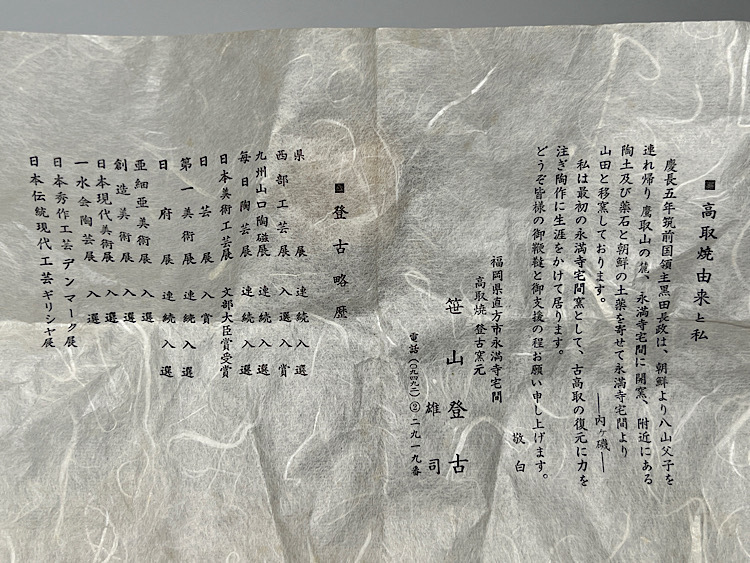 高取焼由来と私
慶長五年筑前国領主黒田長政は、朝鮮より八山父子を
連れ帰り鷹取山の麓、永満寺宅間に開窯、附近にある
陶土及び薬石と朝鮮の土薬を寄せて永満寺宅間より
―内ヶ磯―
山田と移窯しております。
私は最初の永満寺宅間窯として、古高取の復元に力を
注ぎ陶作に生涯をかけて居ります。
どうぞ皆様の御鞭撻と御支援の程お願い申し上げます。
敬白
福岡県直方市永満寺宅間
高取焼 登古窯元
笹山登古
雄司
電話(〇九四九二)②二九一九番
登古略歴
県展 連続入選
西部工芸展 入選入賞
九州山口陶磁展 連続入選
毎日陶芸展 連続入選
日本美術工芸展 文部大臣賞受賞
日芸展 入賞
第一美術展 連続入選
日府展 連続入選
亜細亜美術展 入選
創造美術展 入選
日本現代美術展 入選
一水会陶芸展 入選
日本秀作工芸デンマーク展
日本伝統現代工芸ギリシヤ展